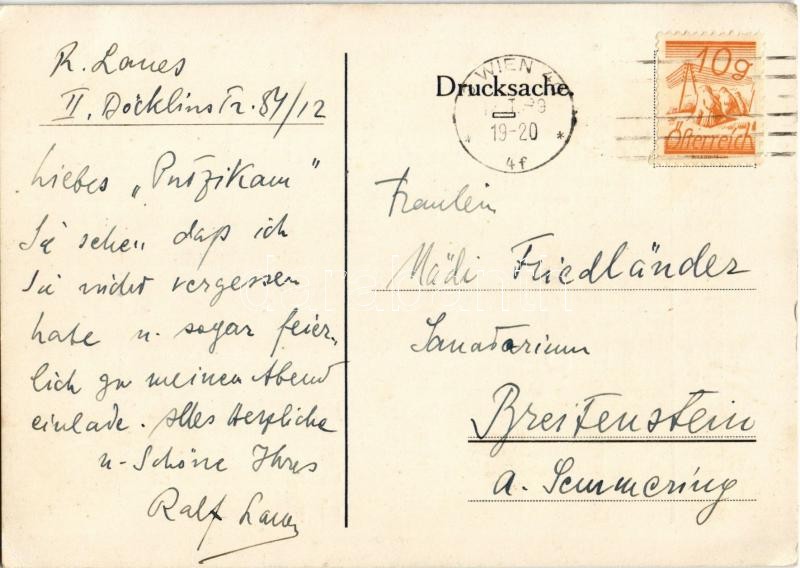 R. Lanes
II. Böcklinstr. 84/12
Liebes „Putzikam"
Sie sehen daß ich
Sie nicht vergessen
habe u. sogar feier-
lich zu meinen Abend
einlade. Alles Herzliche
u. Schöne Ihres
Ralf
Drucksache.
WIEN
19-20
4f
10g
Österreich
Fräulein
Mädi Friedländer
Sanatorium
Breitenstein
a. Semmering
darabanth